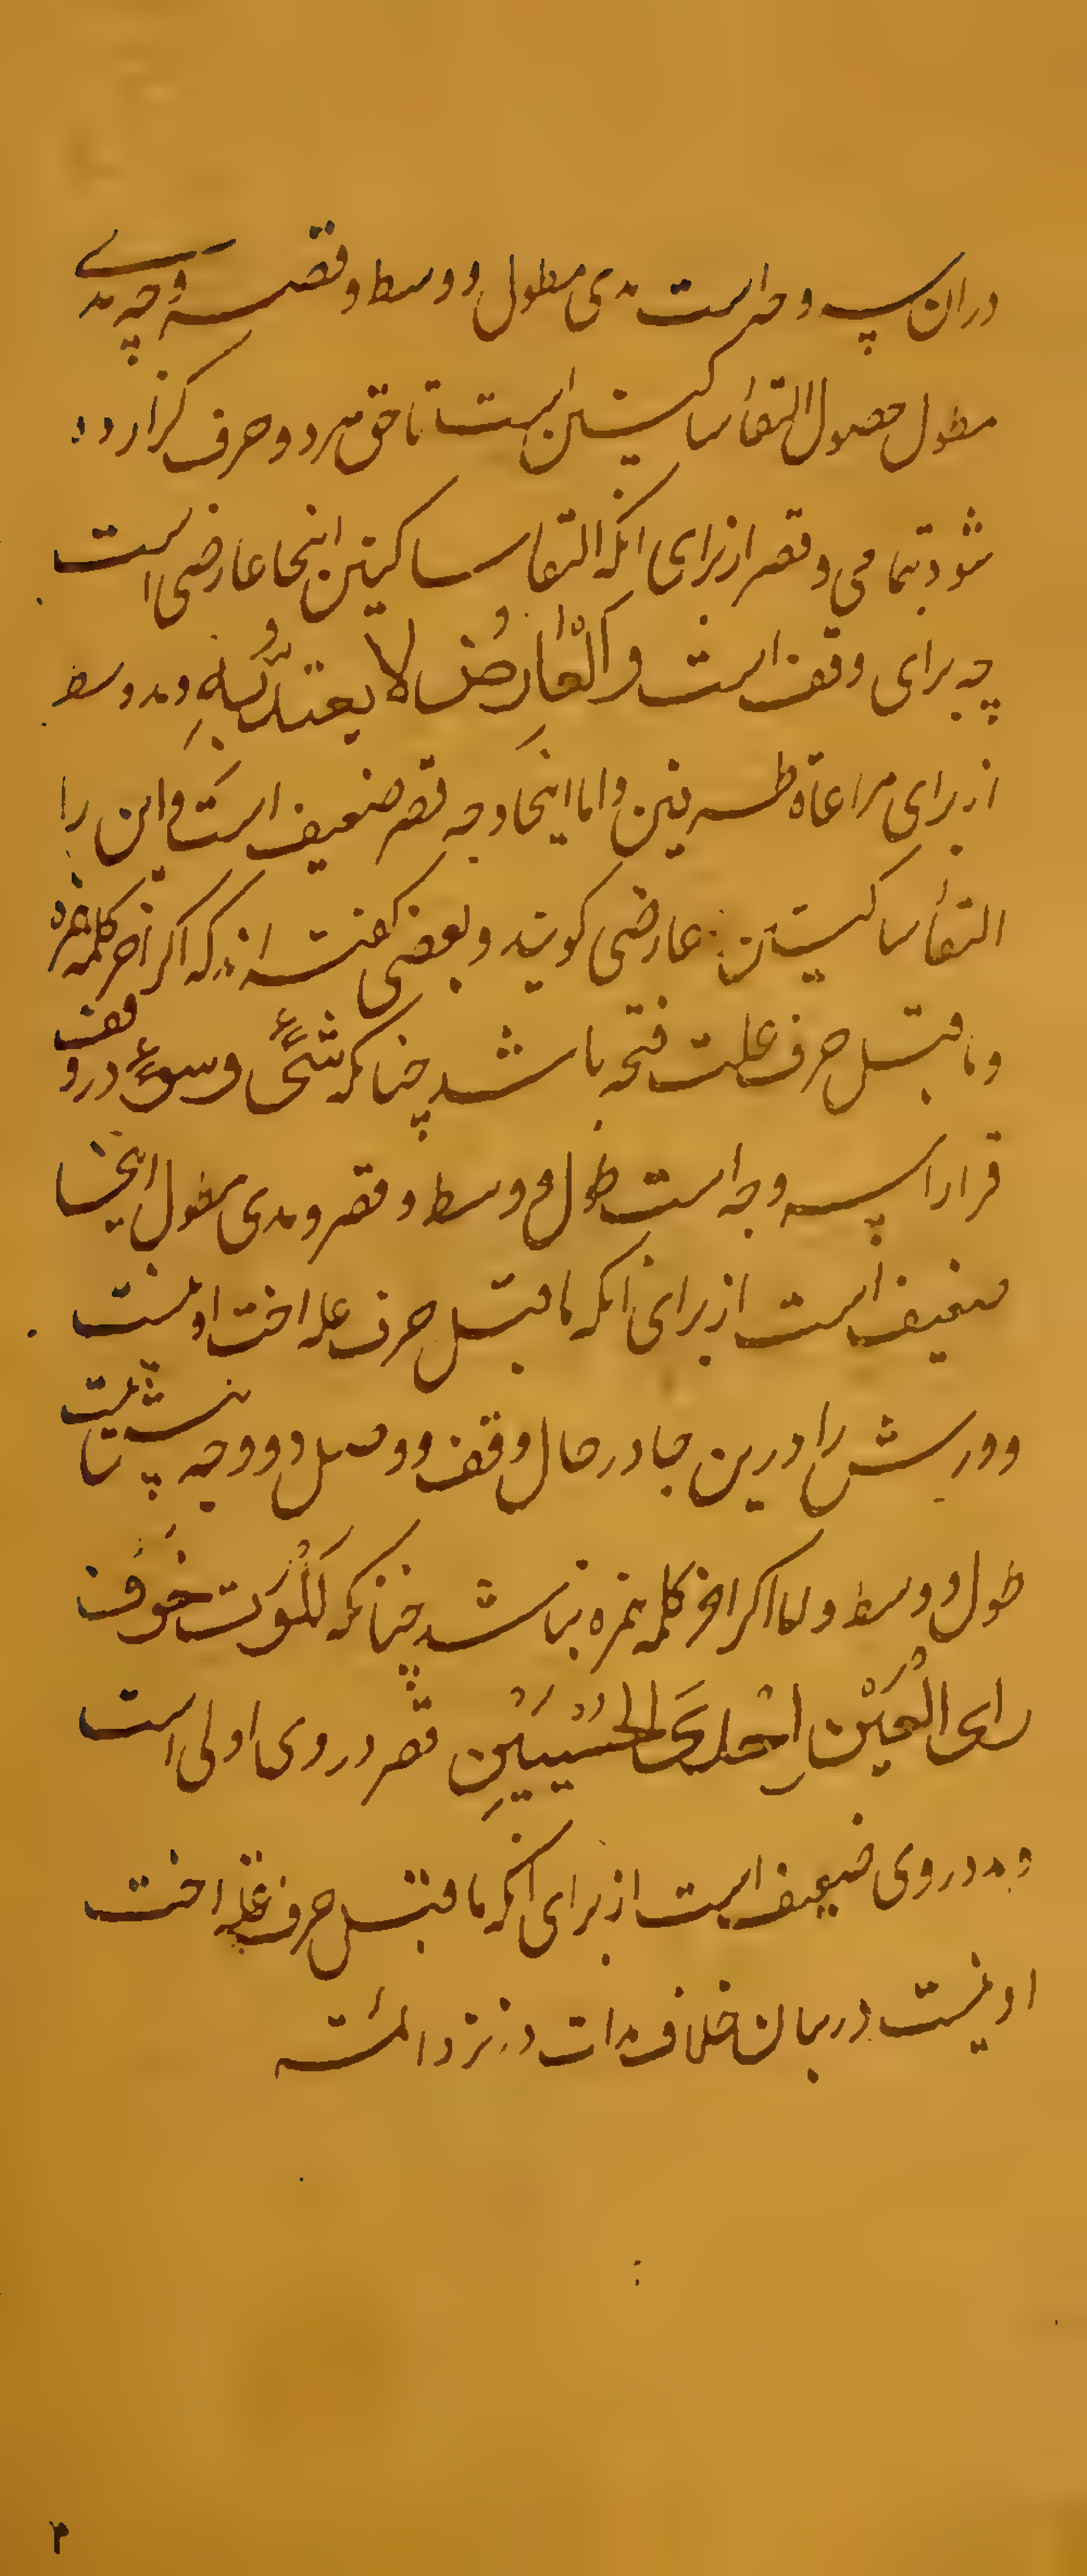 در ان سه وجه است مدی مطول و وسط و قصر وجه مدی
مطول حصول التقاء ساکنین است تا حق هر دو حرف گزارده
شود بتمامی و قصر از برای انکه التقا ساکنین اینجا عارضی است
چه برای وقف است وَالْعَارِضُ لا یعتدُّ بِهِ و مد وسط
از برای مراعاة طرفین و اما اینجا وجه قصر ضعیف است و این را
التقاء ساکنین عارضی کویند و بعضی کفته اند که اکر اخر کلمه همزه
و ماقبل حرف علت فتحه باشد چنانکه شَیْءٍ و سوءٍ در وقف
قرا را سه وجه است طول و وسط و قصر و مدی مطول اینجا
ضعیف است از برای انکه ماقبل حرف عله اخت او نیست
و ورش را درین جا در حال وقف و وصل دو وجه ثابت
طول و وسط و اما اکر اخر کلمه همزه نباشد چنانکه لَلْمَوْت خَوْف
رای الْعَیْنِ اِحْدَی الْحُسْنَیَیْنِ قصر در وی اولی است
و مد در وی ضعیف است از برای انکه ماقبل حرف عله اخت
او نیست در بیان خلاف مدات در نزد ائمه
۳